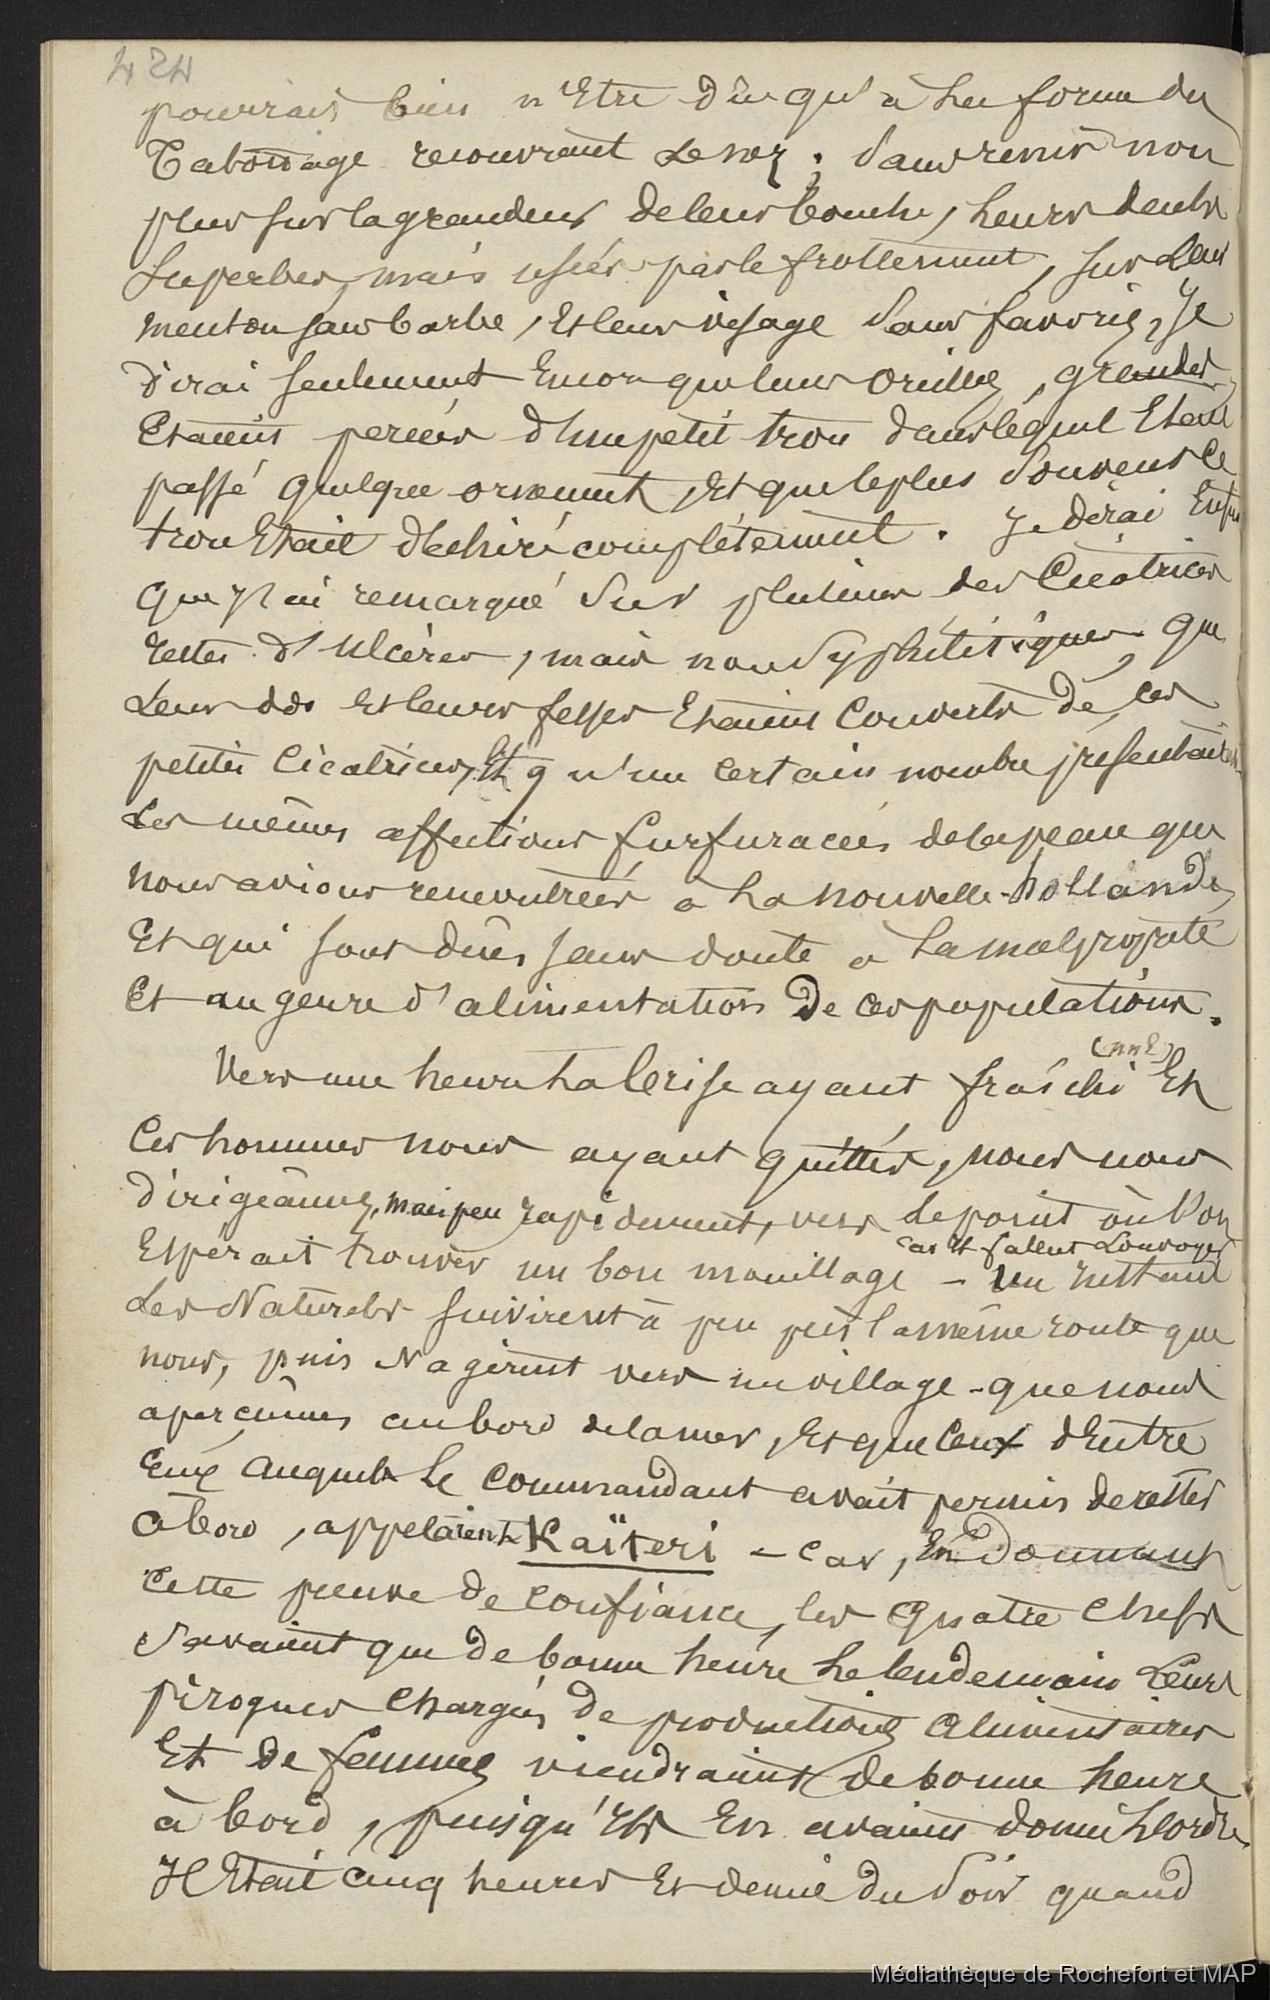 424
pourrais bien n'Etre dûe qu'à la forme du
Tatouage recouvrant Le nez ; Sans revenir non
plus sur la grandeur de leur bouche, Leurs dents
Superbes, mais usées par le frottement, sur Leur
menton sans barbe, Et leur visage Sans favoris, Je
dirai seulement Encor que leurs Oreilles, grandes
Etaient percées d'un petit trou dans léquel Etait
passé quelque ornement, Et que le plus Souvent Ce
trou Etait déchiré complétement. Je dirai Enfin
Que j'ai remarqué Sur plusieurs des Cicatrices
restes d'Ulcères, mais non Syphilitiques, que
Leur dos Et leurs fesses Etaient Couverts de ces
petites Cicatrices, Et qu'un certain nombre présentaient
Les mêmes affections furfuracées de la peau que
nous avions rencontrées à La Nouvelle-hollande,
Et qui sont dûes sans doute à La malpropreté
Et au genre d'alimentation De ces populations.
(nne)
Vers une heure La brise ayant fraîchi Et
Ces hommes nous ayant quittés, nous nous
dirigeâmes, mais peu rapidement, vers Le point où l'on
Car Il fallut Louvoyer
Espérait trouver un bon mouillage – Un Instant
Les Naturels suivirent à peu près la même route que
nous, puis Nagèrent vers un village - que nous
aperçûmes au bord de la mer, Et que Ceux d'Entre
Eux Auxquels Le Commandant avait permis de rester
à bord, appelaient Kaïteri – Car, En Donnant
Cette preuve de Confiance, les Quatre Chefs
Savaient que De bonne heure Le lendemain Leurs
pirogues Chargées De productions Alimentaires
Et De femmes viendraient de bonne heure
à bord, puisqu'Ils En avaient donné L'ordre.
Il Etait Cinq heures Et demie du Soir quand
Médiathèque de Rochefort et MAP